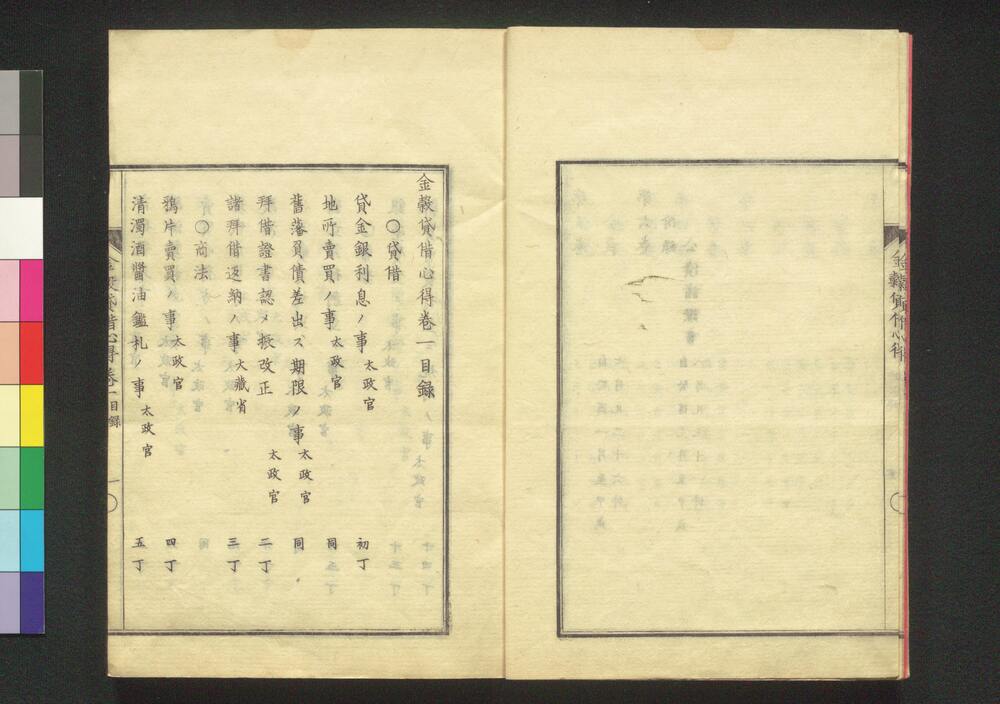 金穀貸借心得巻一目録
〇貸借
貸金銀利息ノ事 太政官 初丁
地所賣買ノ事 太政官 同
舊藩負債差出ス期限ノ事 太政官 同
拜借證書認メ振改正 太政官 二丁
諸拜借返納ノ事 大藏省 三丁
〇商法
鴉片賣買ノ事 太政官 四丁
清濁酒醬油鑑札ノ事 太政官 五丁
金穀貸借心得 巻一目録 一
金穀貸借心得